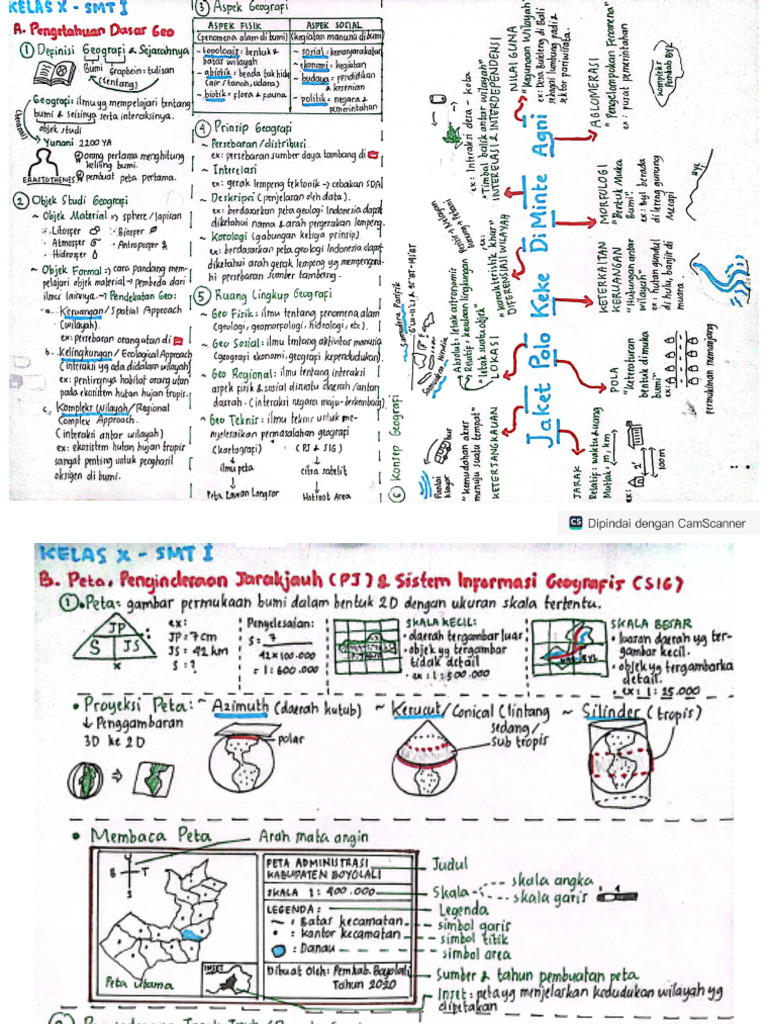 KELAS X - SMT I
A. Pengetahuan Dasar Geo
① Definisi Geografi & Sejarahnya
Bumi Graphein: tulisan
(tentang)
Geografi: ilmu yg mempelajari tentang
bumi & seisinya serta interaksinya.
objek studi
Yunani 2200 YA
orang pertama menghitung
keliling bumi.
pembuat peta pertama.
ERASTOTHENES
② Objek Studi Geografi
~ Objek Material => sphere/lapisan
• Litosfer • Biosfer
• Atmosfer • Antroposfer
• Hidrosfer
~ Objek Formal => cara pandang mem-
pelajari objek material → Pembeda dari
ilmu lainnya. → Pendekatan Geo:
a. Keruangan/Spatial Approach
(wilayah).
ex: persebaran orang utan di
b. Kelingkungan/Ecological Approach
(interaksi yg ada didalam wilayah)
ex: pentingnya habitat orang utan
pada ekosistem hutan hujan tropis.
c. Kompleks Wilayah/Regional
Complex Approach.
(interaksi antar wilayah)
ex: ekosistem hutan hujan tropis
sangat penting untuk penghasil
oksigen di bumi.
③ Aspek Geografi
ASPEK FISIK
(fenomena alam di bumi)
~ topologi = bentuk &
batas wilayah
~ abiotik = benda tak hidup
(air/tanah, udara)
~ biotik = flora & fauna
ASPEK SOSIAL
(kegiatan manusia di bumi)
~ sosial = kemasyarakatan
~ ekonomi = kegiatan
~ budaya = pendidikan
& kesenian
~ politik = negara &
pemerintahan
④ Prinsip Geografi
~ Persebaran/distribusi.
ex: persebaran sumber daya tambang di
~ Interelasi
ex: gerak lempeng tektonik → cebakan SDA
~ Deskripsi (penjelasan oleh data).
ex: berdasarkan peta geologi Indonesia dapat
diketahui nama & arah pergerakan lempeng.
~ Korologi (gabungan ketiga prinsip).
ex: berdasarkan peta geologi Indonesia dapat
diketahui arah gerak lempeng yg mempengaru-
hi persebaran sumber tambang.
⑤ Ruang Lingkup Geografi
~ Geo Fisik: ilmu tentang fenomena alam
(geologi, geomorfologi, hidrologi, etc).
~ Geo Sosial: ilmu tentang aktivitas manusia
(geografi ekonomi, geografi kependudukan).
~ Geo Regional: ilmu tentang interaksi
aspek fisik & sosial disuatu daerah/antar
daerah. (interaksi negara maju-berkembang).
~ Geo Teknis: ilmu teknis untuk me-
nyelesaikan permasalahan geografi
(kartografi) (PJ & SIG)
ilmu peta citra satelit
Peta Rawan Longsor Hotspot Area
⑥ Konsep Geografi
Jaket Polo Keke Di Minte Agni
KETERJANGKAUAN
"Kemudahan akses
menuju suatu tempat"
Pantai
bus
LOKASI
"letak suatu objek"
Absolut: letak astronomis
Relatif: keadaan lingkungan
Samudera Pasifik
Samudera Hindia
DIFERENSIASI WILAYAH
"Karakteristik khas"
ex:
INTERELASI & INTERDEPENDENSI
"Timbal balik antar wilayah"
ex: Interaksi desa - kota
NILAI GUNA
"Kegunaan Wilayah"
ex: Desa Buleleng di Bali
sebagai lumbung padi &
sektor pariwisata.
JARAK
Relatif: waktu & uang
Mutlak: m, km
ex:
100m
POLA
"keteraturan
bentuk di muka
bumi"
ex:
permukiman memanjang
KETERKAITAN
KERUANGAN
"Hubungan antar
wilayah"
ex: hutan gundul
di hulu, banjir di
muara.
MORFOLOGI
"Bentuk Muka
Bumi"
ex: Byl berada
di lereng gunung
Merapi
BYL
AGLOMERASI
"Pengelompokan Fenomena"
ex: pusat pemerintahan
Kompleks
Pemkab BYL
CS Dipindai dengan CamScanner
KELAS X - SMT I
B. Peta, Penginderaan Jarak jauh (PJ) & Sistem Informasi Geografis (SIG)
① • Peta: gambar permukaan bumi dalam bentuk 2D dengan ukuran skala tertentu.
JP
S JS
x
ex:
JP = 7 cm
JS = 42 km
S = ?
Penyelesaian:
S = 7
42 x 100.000
= 1: 600.000
SKALA KECIL:
• daerah tergambar luas
• objek yg tergambar
tidak detail
• ex: 1: 500.000
SKALA BESAR
• luasan daerah yg ter-
gambar kecil.
• objek yg tergambarkan
detail.
• ex: 1: 25.000
• Proyeksi Peta:
↓ Penggambaran
3D ke 2D
~ Azimuth (daerah kutub)
polar
~ Kerucut/Conical (lintang
sedang/
sub tropis
~ Silinder (tropis)
• Membaca Peta
Arah mata angin
U
B T
S
Peta utama
INSET
PETA ADMINISTRASI
KABUPATEN BOYOLALI
SKALA 1: 400.000
LEGENDA:
~ = Batas kecamatan
• = Kantor kecamatan
= Danau
Dibuat Oleh: Pemkab. Boyolali
Tahun 2020
Judul
Skala
skala angka
skala garis
Legenda
simbol garis
simbol titik
simbol area
Sumber & tahun pembuatan peta
Inset: peta yg menjelaskan kedudukan wilayah yg
dipetakan